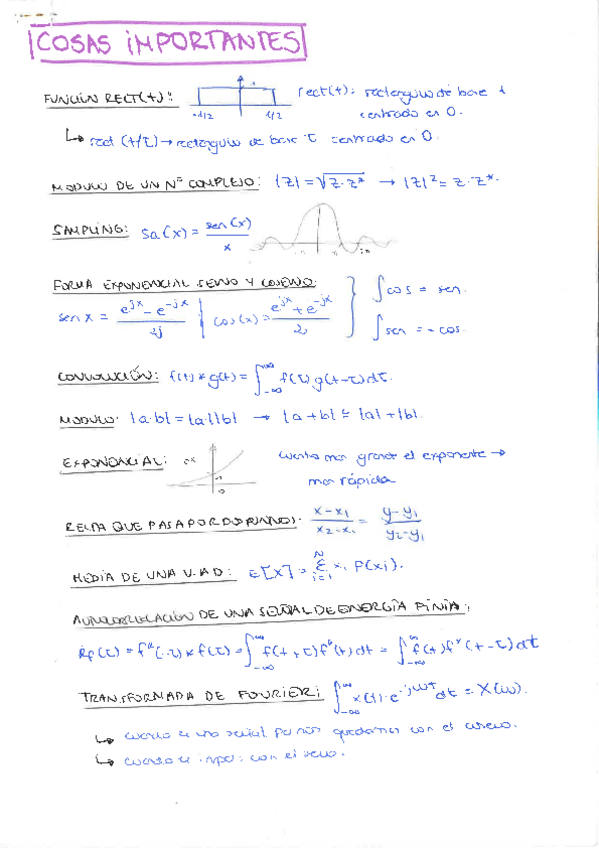 COSAS IMPORTANTES
FUNCIÓN RECT(t): rect(t): rectangulo de base 1
-1/2 1/2 centrado en 0.
↳ rect (t/τ) → rectangulo de base τ centrado en 0.
MODULO DE UN Nº COMPLEJO: |z| = √z·z* → |z|² = z·z*.
SAMPLING: Sa(x) = sen(x)/x
FORMA EXPONENCIAL SENO Y COSENO:
sen x = (e^jx - e^-jx)/2j | cos(x) = (e^jx + e^-jx)/2 } ∫cos = sen.
∫sen = -cos.
CONVOLUCIÓN: f(t) * g(t) = ∫_-∞^∞ f(τ) g(t-τ) dτ.
MODULO: |a·b| = |a|·|b| → |a+b| ≤ |a|+|b|.
EXPONENCIAL: cuanto mas grande el exponente →
mas rápida
RECTA QUE PASA POR DOS PUNTOS: (x-x₁)/(x₂-x₁) = (y-y₁)/(y₂-y₁)
MEDIA DE UNA V.AD: E[X] = Σ_i=1^N xᵢ P(xᵢ).
AUTOCORRELACIÓN DE UNA SEÑAL DE ENERGÍA FINITA:
Rf(τ) = f*(-τ) * f(τ) = ∫_-∞^∞ f(t+τ) f*(t) dt = ∫_-∞^∞ f(t) f*(t-τ) dt
TRANSFORMADA DE FOURIER: ∫_-∞^∞ x(t)·e^-jωt dt = X(ω).
↳ cuando es una señal par nos quedamos con el coseno.
↳ cuando es impar: con el seno.